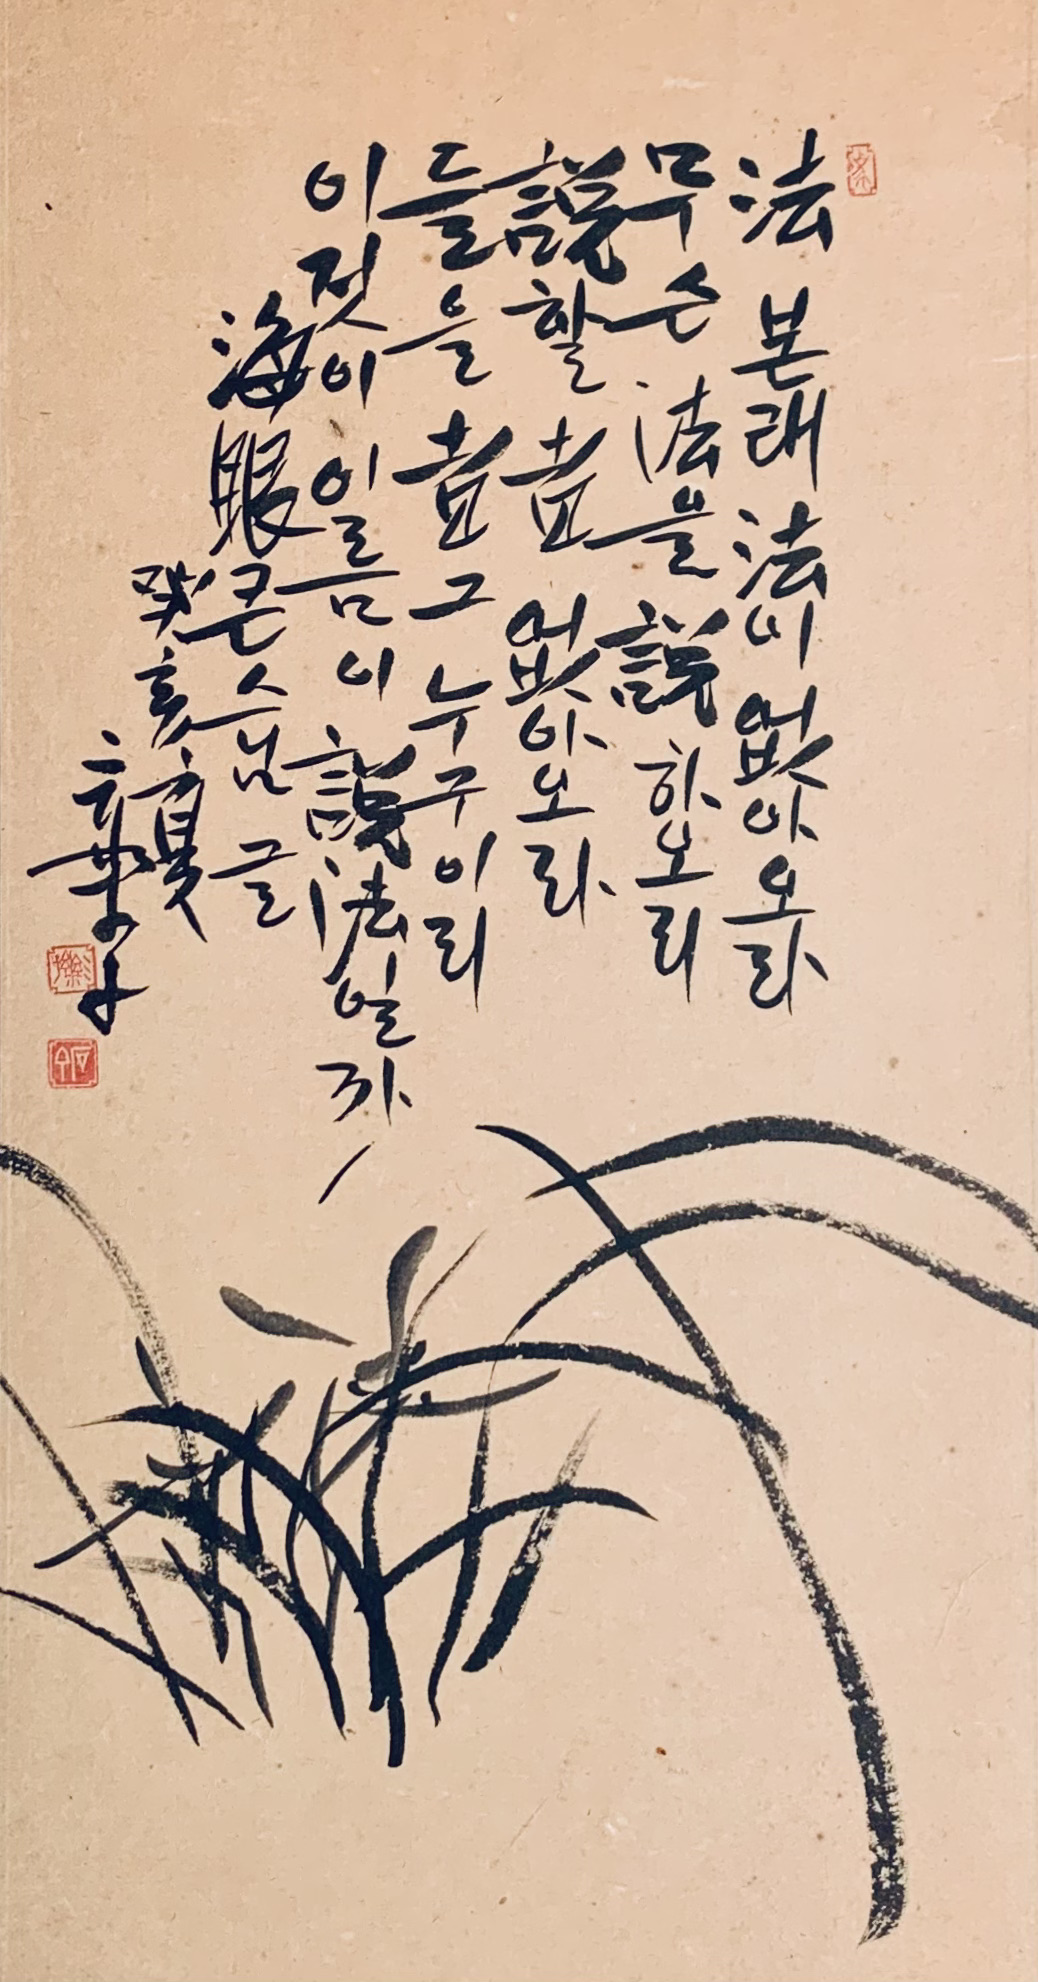 法 본래 法이 없아오라
무슨 法을 說하오리
說할 者 없아오라
들을 者 그 누구이리
이젓이 이름이 說法일까
海眼큰스님 글
癸亥 夏